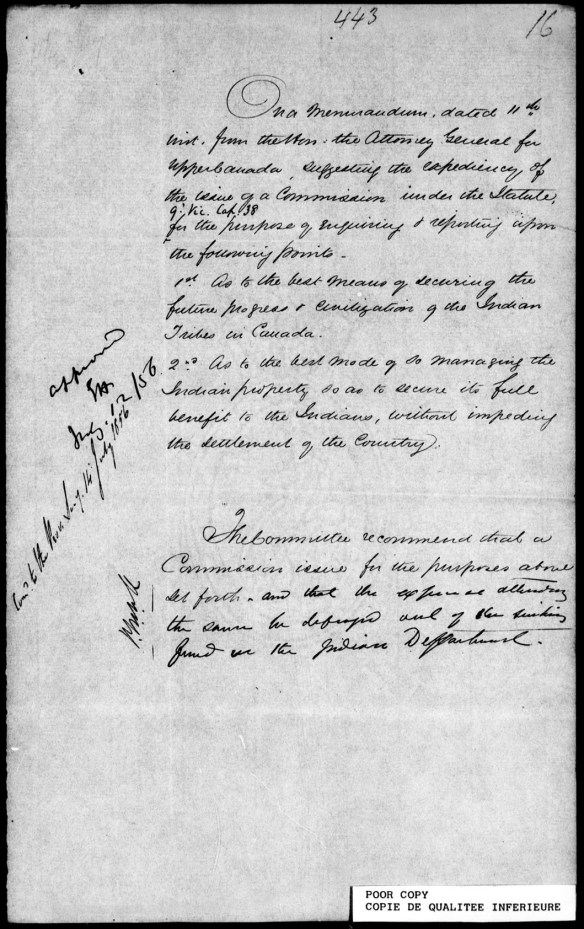 443
16
On a Memorandum, dated 11th
inst. from the Hon. the Attorney General for
Upper Canada, suggesting the expediency of
the issue of a Commission under the Statute,
9. Vic. Cap. 38
for the purpose of enquiring & reporting upon
the following points -
1st As to the best means of securing the
future progress & civilization of the Indian
Tribes in Canada.
2nd As to the best mode of so managing the
Indian property so as to secure its full
benefit to the Indians, without impeding
the settlement of the Country.
The Committee recommend that a
Commission issue for the purposes above
set forth - and that the expense attending
the same be defrayed out of the sinking
fund in the Indian Department.
approved
12/56
to the 14 July 1856
POOR COPY
COPIE DE QUALITEE INFERIEURE